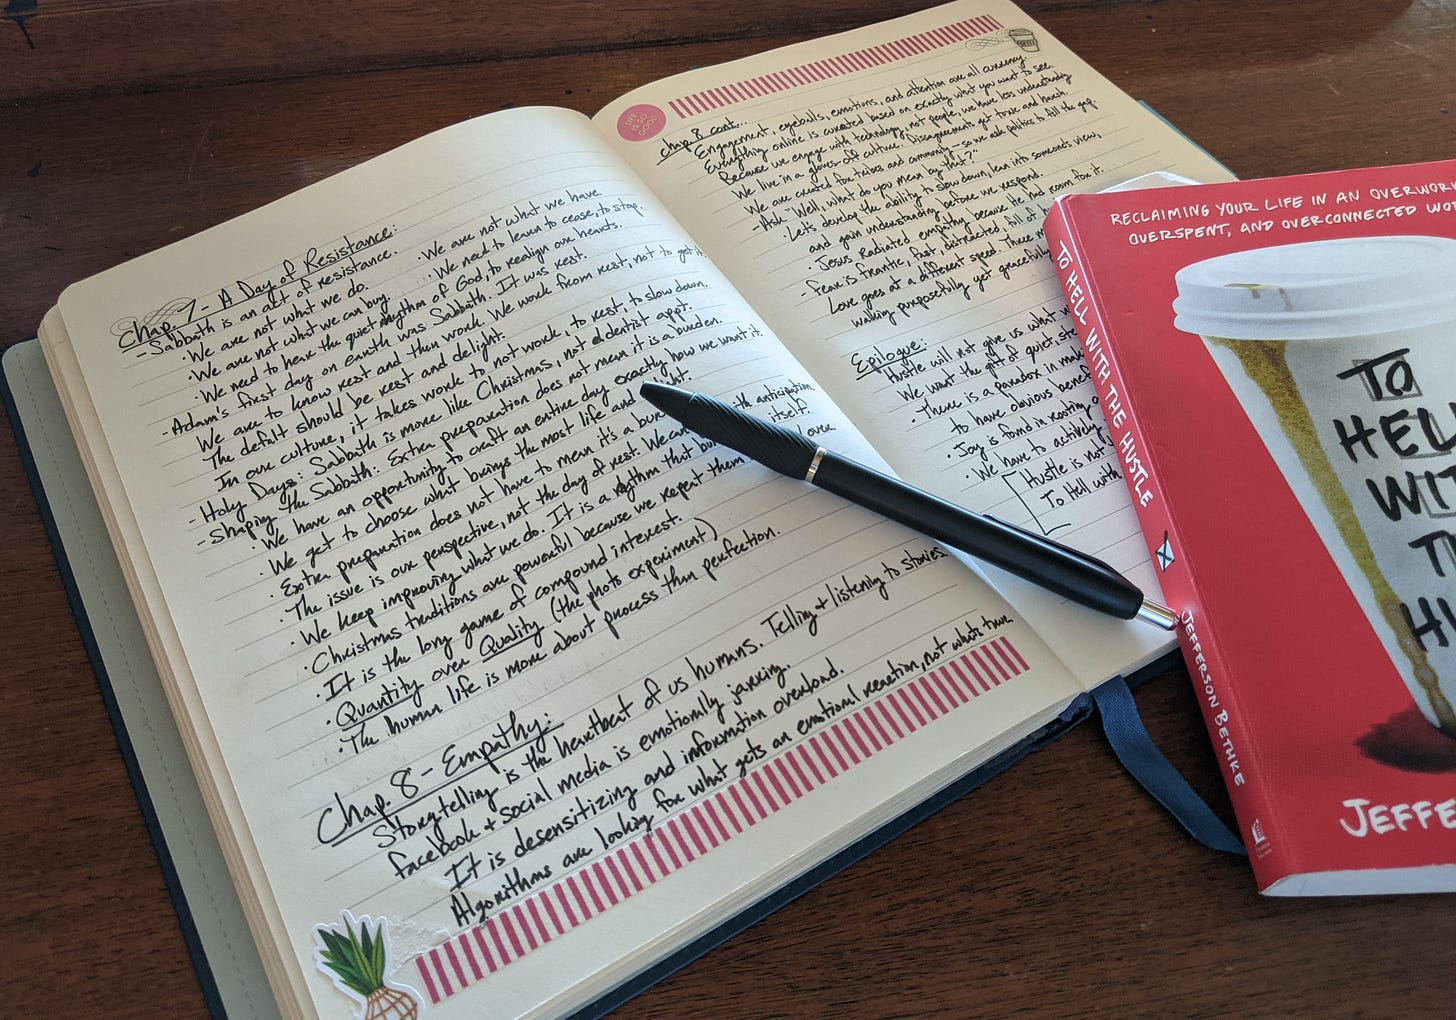 Chap. 7 - A Day of Resistance:
- Sabbath is an act of resistance.
· We are not what we do. · We are not what we have
· We are not what we can buy. · We need to learn to cease, to stop.
We need to hear the quiet rhythm of God, to realign our hearts.
- Adam's first day on earth was Sabbath. It was rest.
We are to know rest and then work. We work from rest, not to get it.
The defalt should be rest and delight.
In our culture, it takes work to not work, to rest, to slow down.
- Holy Days: Sabbath is more like Christmas, not a dentist appt.
- Shaping the Sabbath: Extra preparation does not mean it is a burden.
· We have an opportunity to craft an entire day exactly how we want it.
· We get to choose what brings the most life and
· Extra preparation does not have to mean it's a with anticipation
· The issue is our perspective, not the day of rest. We can itself.
· We keep improving what we do. It is a rhythm that over.
· Christmas traditions are powerful because we repeat them
· It is the long game of compound interest.
· Quantity over Quality (the photo experiment)
· The human life is more about process than perfection.
Chap. 8 - Empathy:
Storytelling is the heartbeat of us humans. Telling + listening to stories.
Facebook + social media is emotionally jarring.
It is desensitizing and information overload.
Algorithms are looking for what gets an emotional reaction, not whats true
LIFE IS SO GOOD
chap. 8 cont...
Engagement, eyeballs, emotions, and attention are all currency
Everything online is curated based on exactly what you want to see.
Because we engage with technology, not people, we have less understanding
We live in a gloves-off culture. Disagreements get toxic and harsh
We are created for tribes and community - so we ask politics to fill the gap.
- Ask - "Well, what do you mean by that?"
· Let's develop the ability to slow down, lean into someone's view,
and gain understanding before we respond.
· Jesus radiated empathy because he had room for it.
- Fear is frantic, fast, distracted, full of
Love goes at a different speed. There
walking purposefully yet gracefully
Epilogue:
Hustle will not give us what
We want the gift of quiet,
· There is a paradox in
to have obvious
· Joy is found in
· We have to actively
Hustle is not
To Hell with
TO HELL WITH THE HUSTLE
JEFFERSON BETHKE
RECLAIMING YOUR LIFE IN AN
OVERSPENT, AND OVERCONNECTED
TO
HELL
WITH